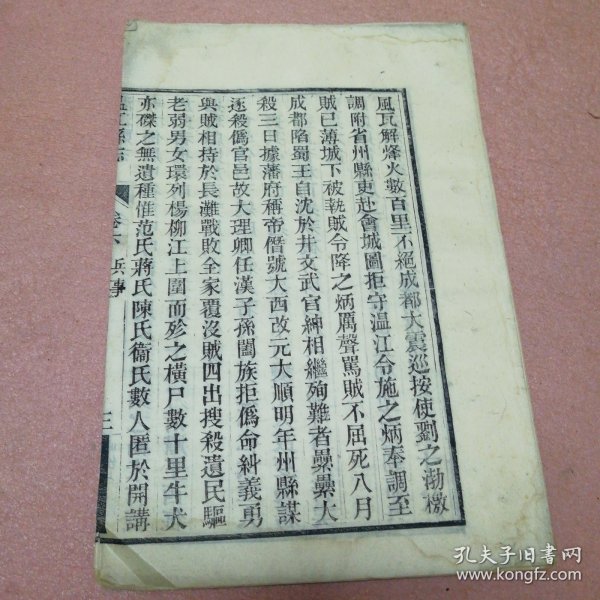 風瓦解烽火數百里不絕成都大震巡按使劉之渤檄
調附省州縣吏赴會城圖拒守温江令施之炳奉調至
賊已薄城下被執賊令降之炳厲聲罵賊不屈死八月
成都陷蜀王自沈於井文武官紳相繼殉難者纍纍大
殺三日據藩府稱帝僭號大西改元大順明年州縣謀
逐殺僞官邑故大理卿任漢子孫闔族拒僞命糾義勇
與賊相持於長灘戰敗全家覆沒賊四出搜殺遺民驅
老弱男女環列楊柳江上圍而殄之橫尸數十里牛犬
亦磔之無遺種惟范氏蔣氏陳氏衞氏數人匿於開講
温江縣志
卷六
兵事
三
孔夫子旧书网
www.kongfz.com